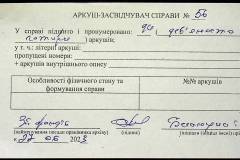 АРКУШ-ЗАСВІДЧУВАЧ СПРАВИ № 5б
У справі підшито і пронумеровано 94 (дев'яносто
чотири) аркушів;
у т.ч.: літерні аркуші
пропущені номери:
+ аркушів внутрішнього опису
Особливості фізичного стану та формування справи
№№ аркушів
(підпис)
27 06 2023